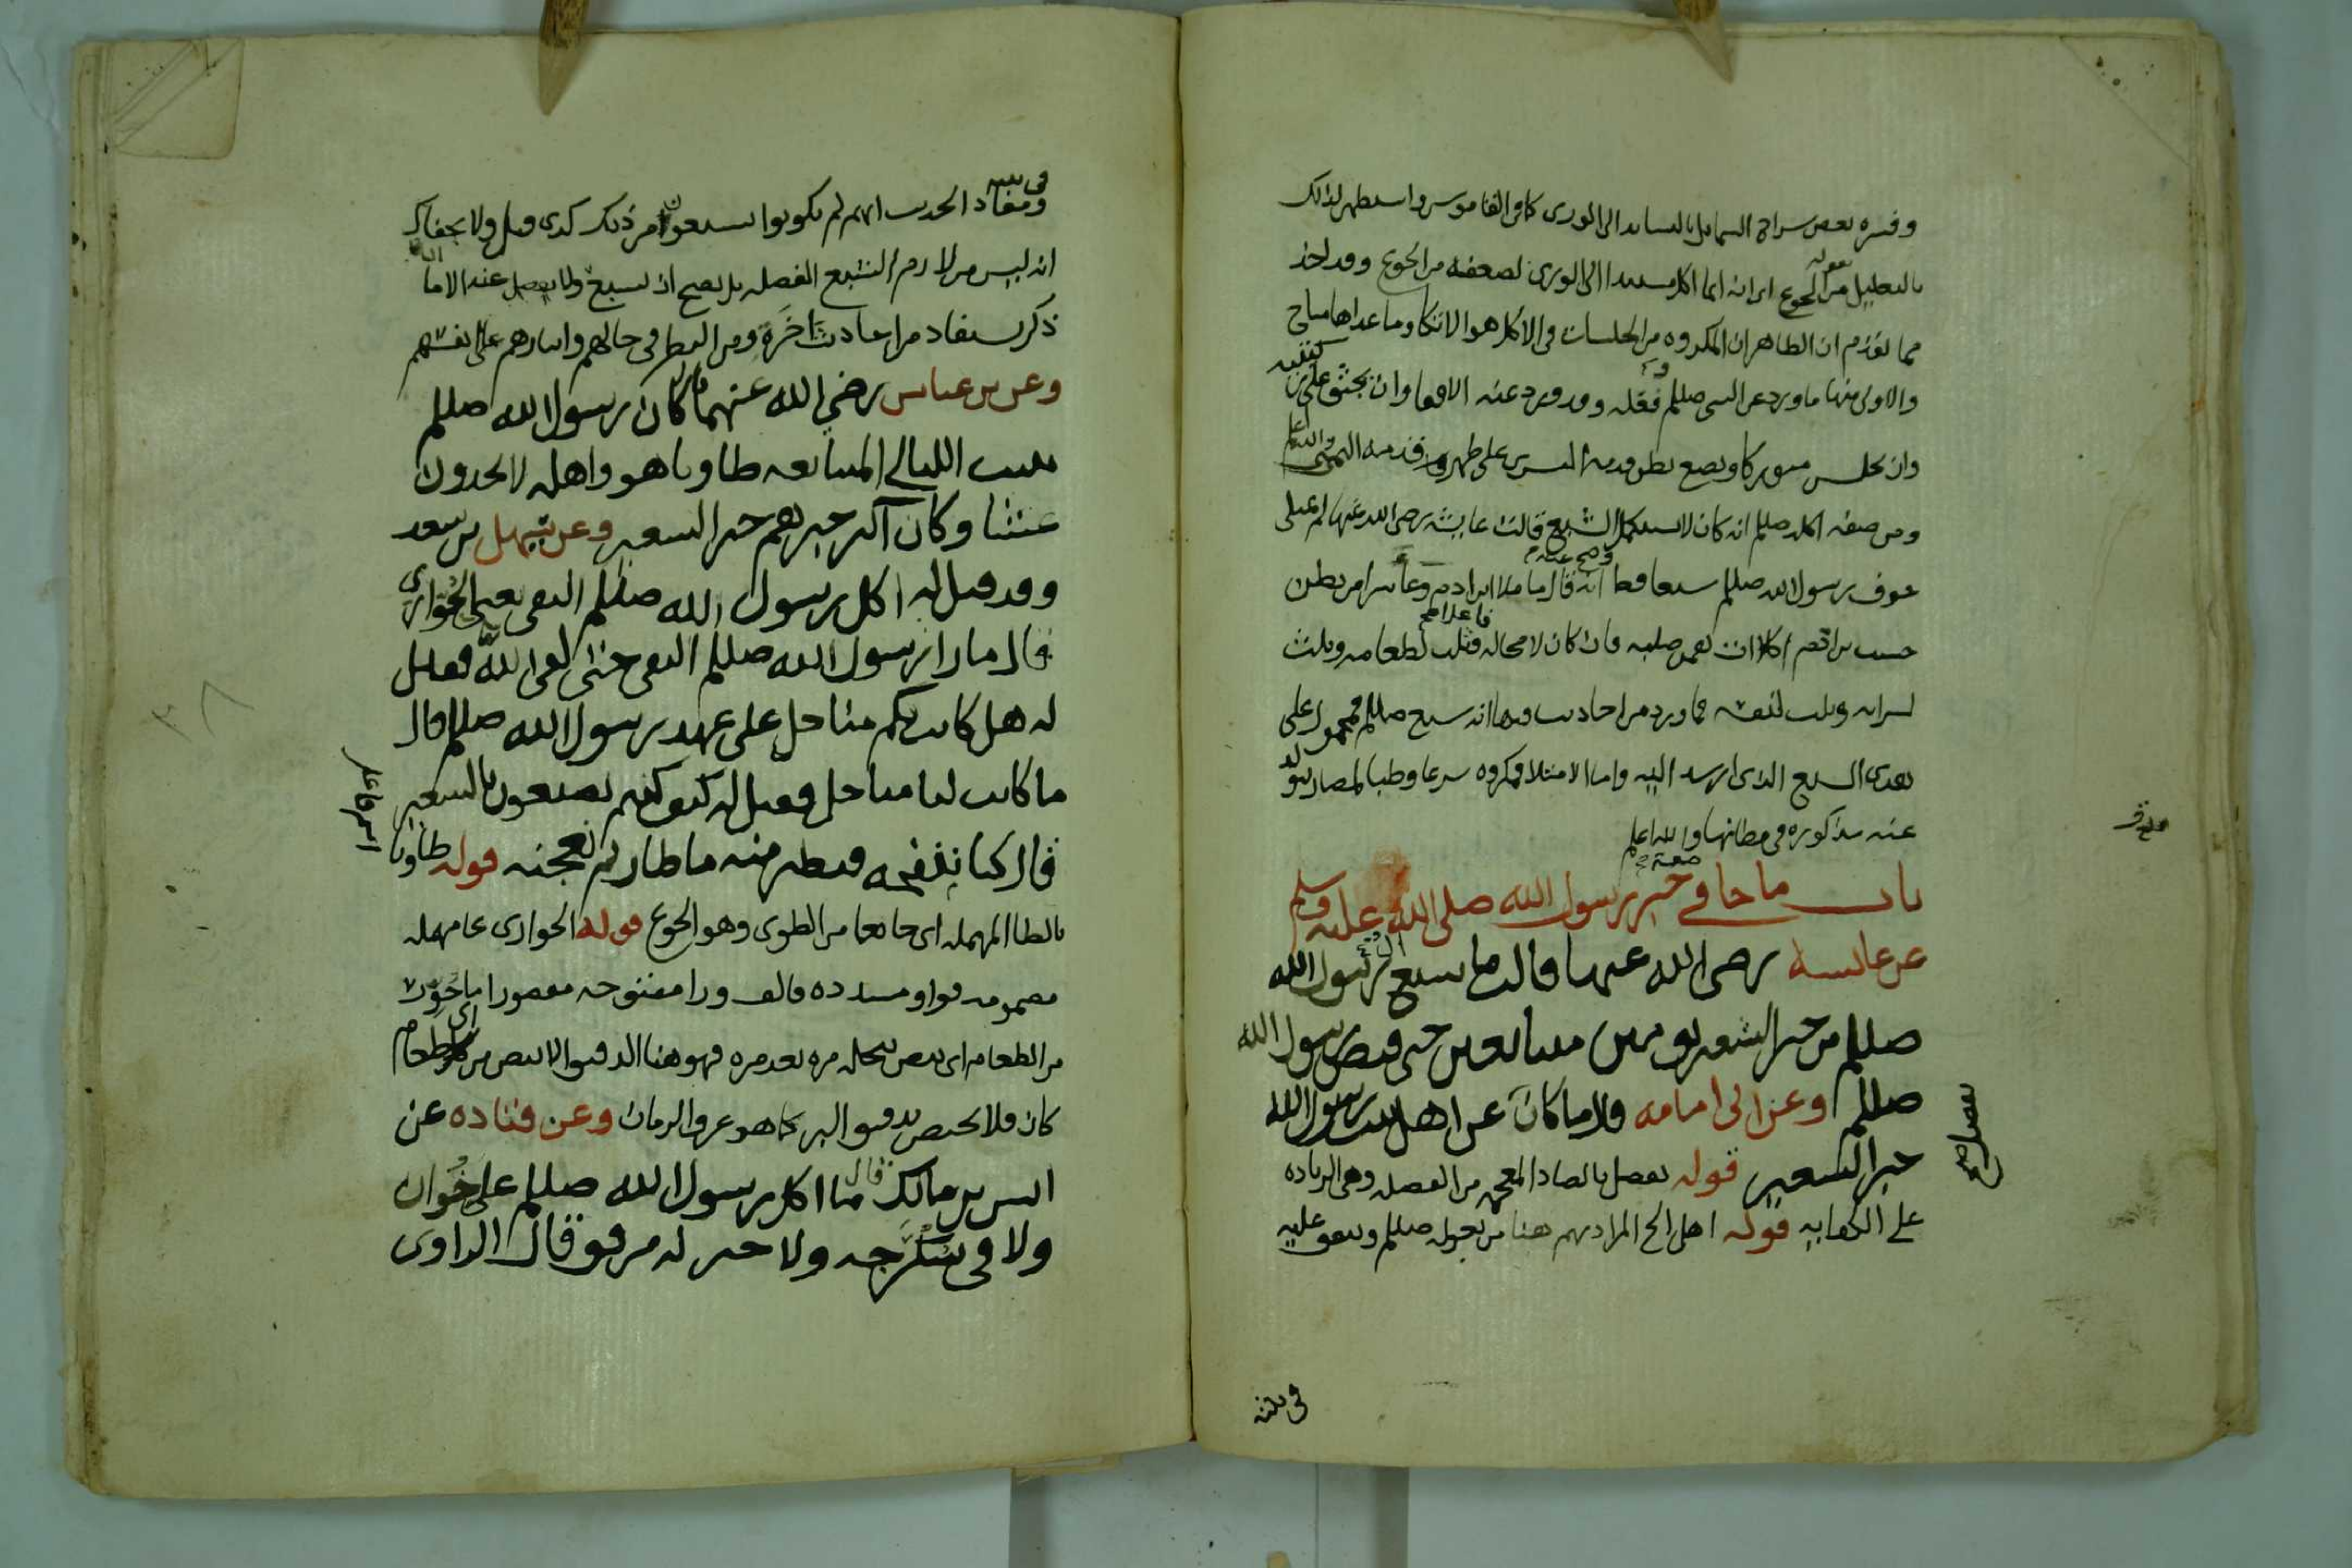 وفسره بعض شراح الشمايل بالتساند الى الورى كما في القاموس واستظهر لذلك
بالتعليل بقوله من الجوع اى انه انما اكل مستندا الى الورى لضعفه من الجوع وقد اخذ
مما تقدم ان الظاهر ان المكروه من الجلسات في الاكل هو الاتكا وما عداها مباح
والاولى منها ما ورد عن النبي صللم فعله وقد ورد عنه الاقعا وان يجثو على ركبتيه
وان يجلس متوركا ويضع بطن قدمه اليسرى على ظهر قدمه اليمنى والله اعلم
ومن صفة اكله صللم انه كان لا يستكمل الشبع قالت عايشه رضى الله عنها لم يمتلى
جوف رسول الله صللم شبعا قط وصح عنه انه قال ما ملا ابن ادم وعا شرا من بطن
حسب بن ادم اكلات يقمن صلبه فان كان لا محاله فاعلا فثلث لطعامه وثلث
لشرابه وثلث لنفسه فما ورد من احاديث فيها انه شبع صللم فمحمول على
هذى الشبع الذى ارشد اليه واما الامتلا فمكروه شرعا وطبا لمضار تتولد
عنه مذكوره في مظانها والله اعلم
باب ما جا في صفة خبز رسول الله صلى الله عليه وسلم
عن عائشه رضى الله عنها قالت ما شبع ال رسول الله
صللم من خبز الشعير يومين متتابعين حتى قبض رسول الله
صللم وعن ابى امامه قال ما كان يفضل عن اهل بيت رسول الله
خبز الشعير قوله يفضل بالضاد المعجمه من الفضله وهى الزياده
على الكفايه قوله اهل الخ المراد بهم هنا من يعوله صللم وينفق عليه
في بيته
في بيته ومفاد الحديث انهم لم يكونوا يشبعون من ذلك كذى قيل ولا يخفاك
انه ليس من لازم الشبع الفضله بل يصح ان يشبع ولما يفضل عنه الا ما
ذكر يستفاد من احاديث اخرة ومن النظر في حالهم وايثارهم على انفسهم
وعن بن عباس رضي الله عنهما قال كان رسول الله صللم
يبيت الليالي المتتابعه طاويا هو واهله لا يجدون
عشا وكان اكثر خبزهم خبز الشعير وعن سهل بن سعد
وقد قيل له اكل رسول الله صللم النقى يعنى الحوارى
فقال ما راى رسول الله صللم النقى حتى لقى الله فقيل
له هل كانت لكم مناخل على عهد رسول الله صللم قال
ما كانت لنا مناخل فقيل له كيف كنتم تصنعون بالشعير
قال كنا ننفخه فيطير منه ما طار ثم نعجنه قوله طاويا
بالطا المهمله اى جائعا من الطوى وهو الجوع قوله الحوارى بحا مهمله
مضمومه فواو مشدده فالف ورا مفتوحه مقصورا ما حور
من الطعام اى بيض بنخله مره بعد مره فهو هنا الدقيق الابيض من اى طعام
كان فلا يختص بدقيق البر كما هو عرف الزمان وعن قتاده عن
انس بن مالك قال ما اكل رسول الله صللم على خوان
ولا في سكرجه ولا خبز له مرقق قال الراوى